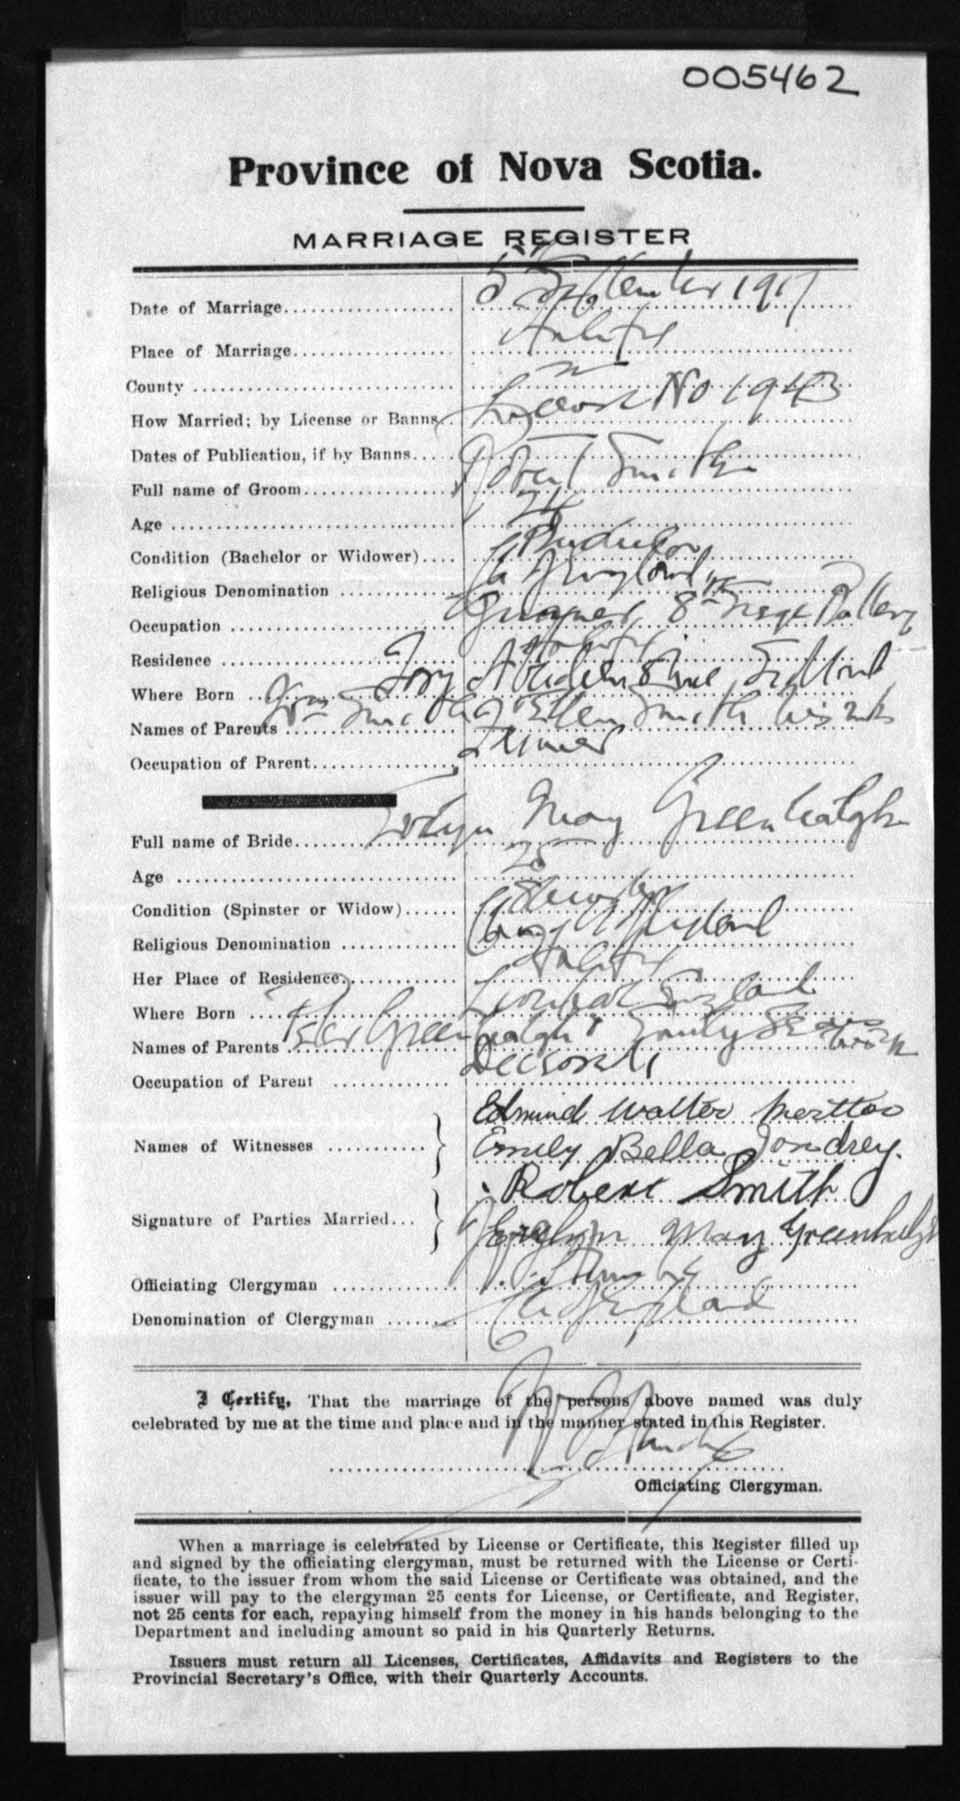 005462
Province of Nova Scotia.
MARRIAGE REGISTER
Date of Marriage 5th September 1917
Place of Marriage Halifax
County "
How Married; by License or Banns License No 1943
Dates of Publication, if by Banns
Full name of Groom Robert Smith
Age 24
Condition (Bachelor or Widower) Bachelor
Religious Denomination Ch England
Occupation Gunner, 8th Siege Battery
Residence Halifax
Where Born Aberdeenshire, Scotland
Names of Parents Wm Smith & Ellen Smith his wife
Occupation of Parent Farmer
Full name of Bride Evelyn May Greenhalgh
Age 25
Condition (Spinster or Widow) Spinster
Religious Denomination Ch England
Her Place of Residence Halifax
Where Born England
Names of Parents Peter Greenhalgh & Emily
Occupation of Parent Deceased
Names of Witnesses Edmund Walter
Emily Bella Jondrey.
Signature of Parties Married Robert Smith
Evelyn May Greenhalgh
Officiating Clergyman
Denomination of Clergyman Ch England
I Certify, That the marriage of the persons above named was duly
celebrated by me at the time and place and in the manner stated in this Register.
Officiating Clergyman.
When a marriage is celebrated by License or Certificate, this Register filled up
and signed by the officiating clergyman, must be returned with the License or Certi-
ficate, to the issuer from whom the said License or Certificate was obtained, and the
issuer will pay to the clergyman 25 cents for License, or Certificate, and Register,
not 25 cents for each, repaying himself from the money in his hands belonging to the
Department and including amount so paid in his Quarterly Returns.
Issuers must return all Licenses, Certificates, Affidavits and Registers to the
Provincial Secretary's Office, with their Quarterly Accounts.